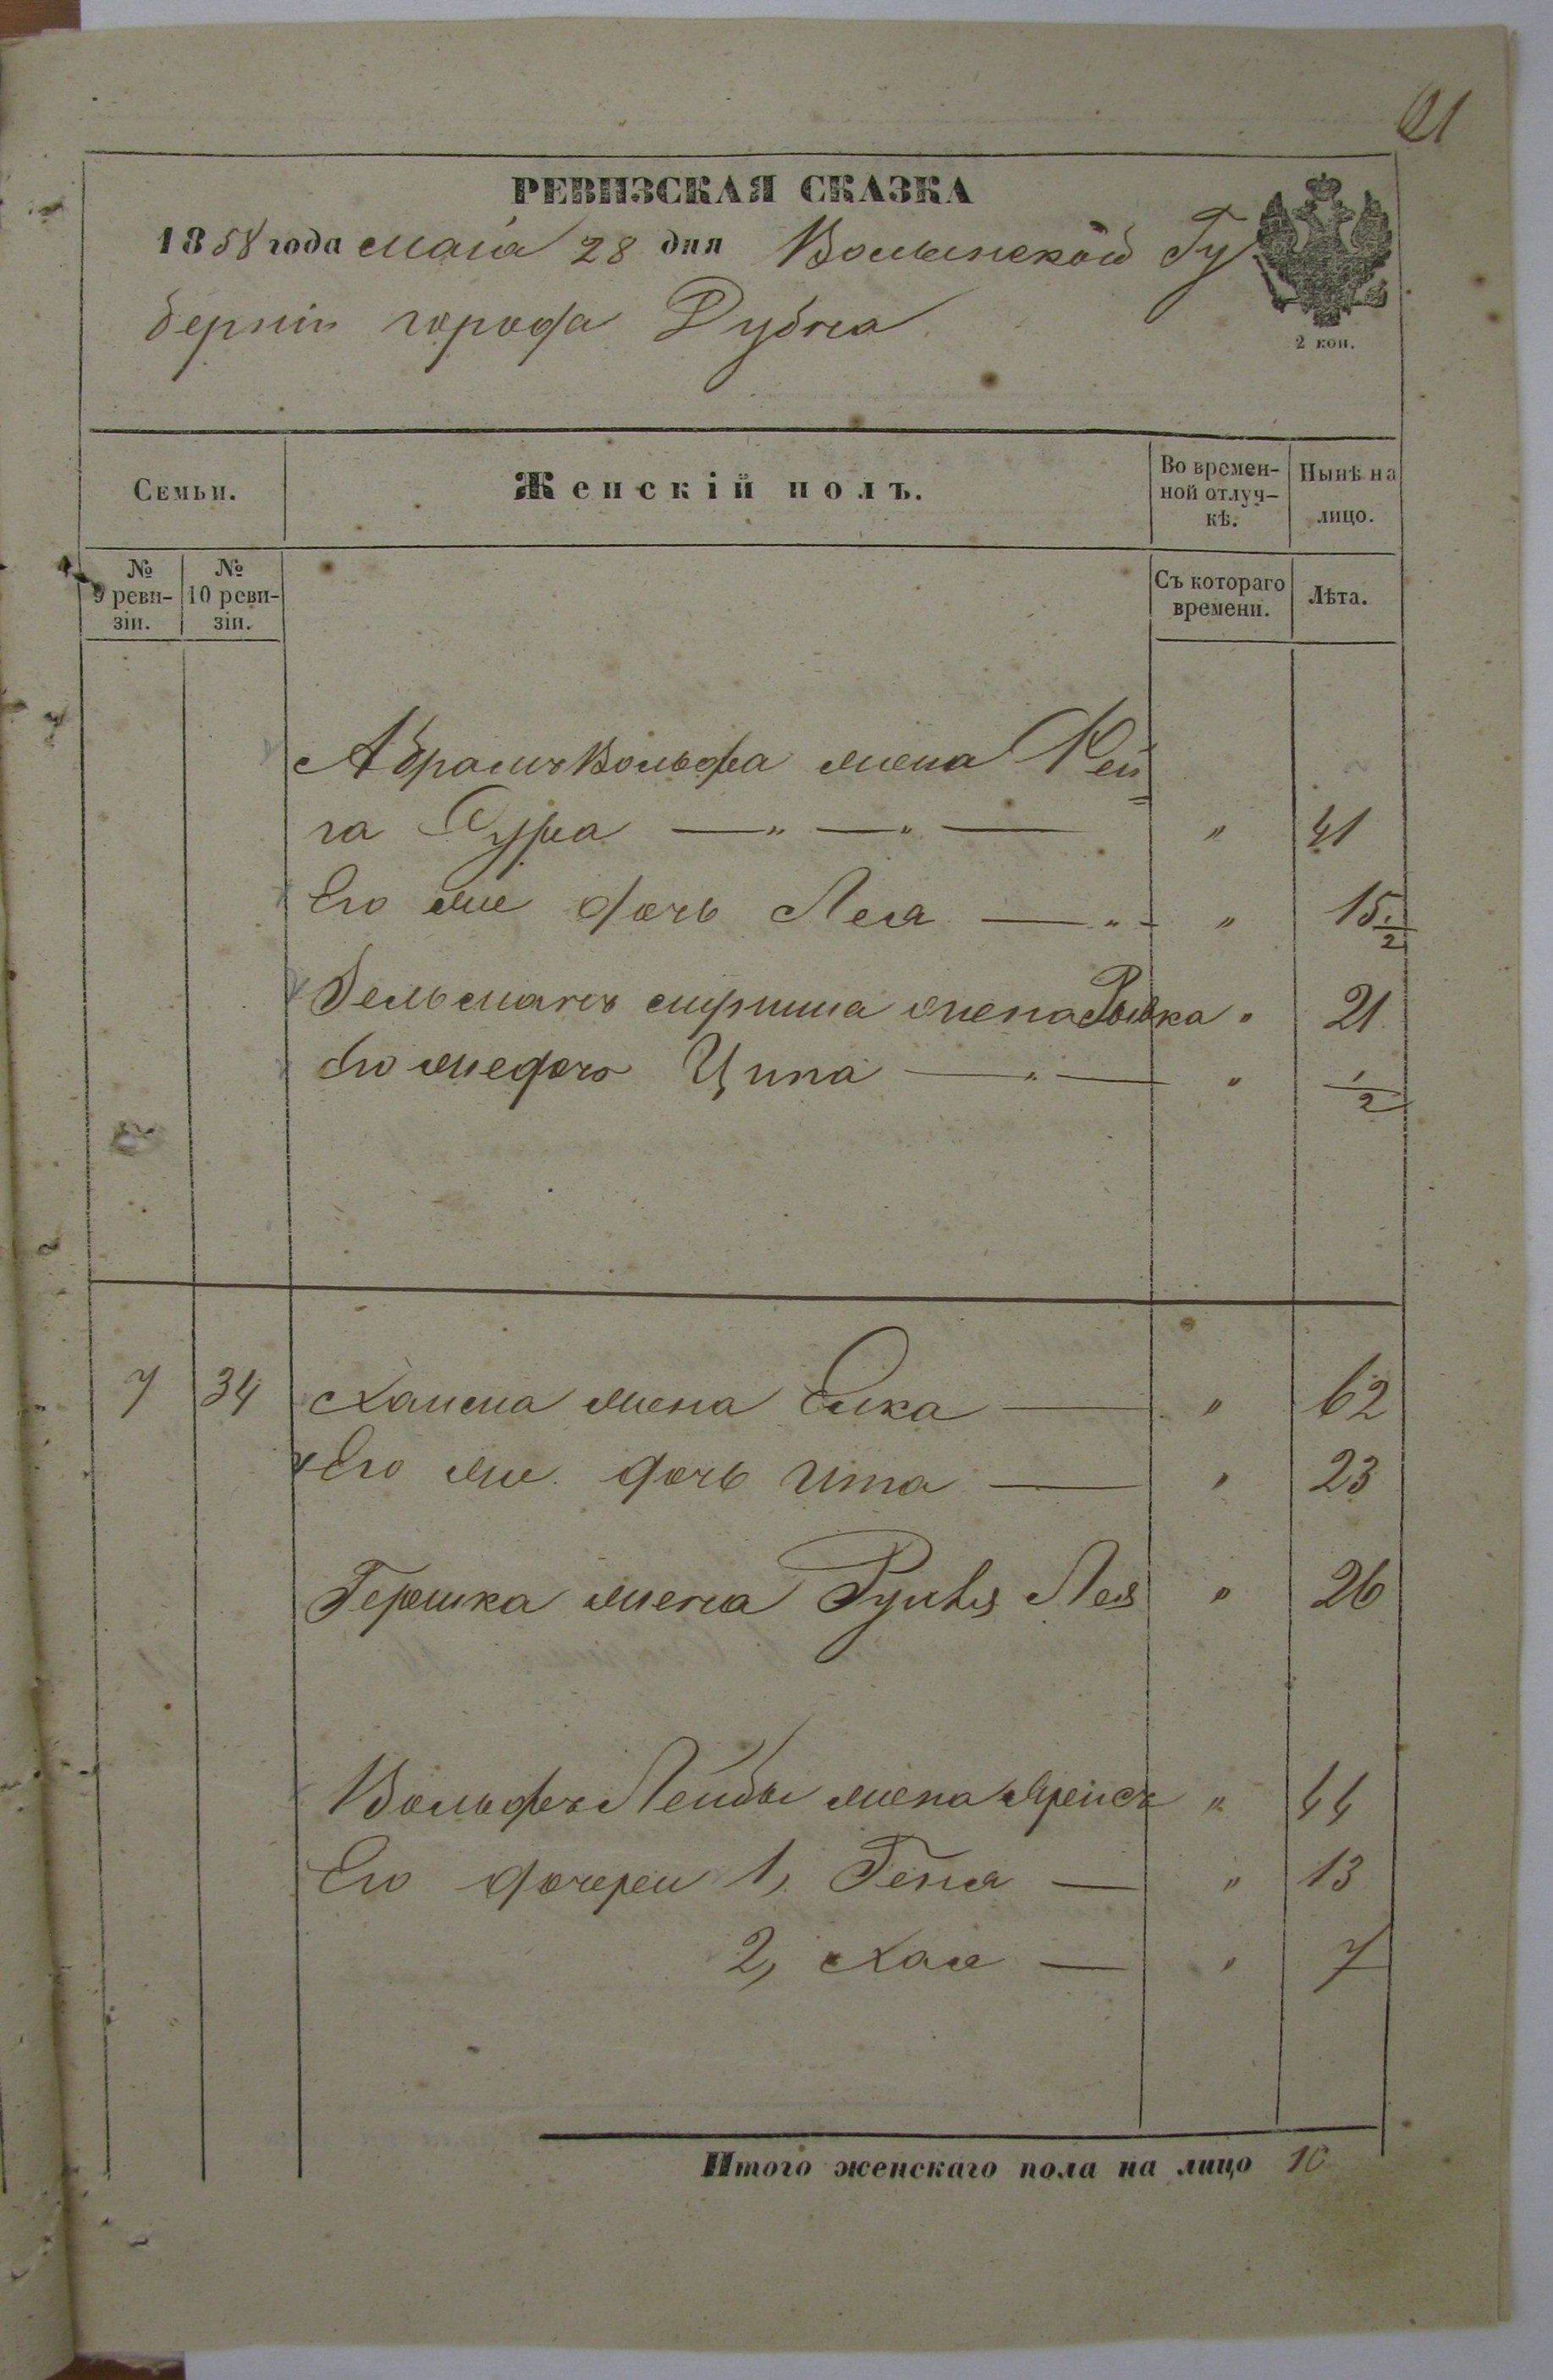 61
РЕВИЗСКАЯ СКАЗКА
1858 года маія 28 дня Волынской Гу
берніи города Дубна
2 коп.
Семьи. Женскій полъ. Во времен-ной отлуч-кѣ. Нынѣ на лицо.
№ 9 реви-зіи. № 10 реви-зіи. Съ котораго времени. Лѣта.
Абрамъ Вольфа жена Рей
га Сура — " — " — " 41
Его же дочь Лея — " — " 15 1/2
Гельманъ жена Рывка " 21
Его же дочь Ципа — " — " 1/2
7 34 Хаима жена Елка — " 62
Его же дочь Ита — " 23
Гершка жена Рухля Лея " 26
Вольфъ Лейбы жена " 44
Его дочери 1, Геня — " 13
2, Хая — " 7
Итого женскаго пола на лицо 10